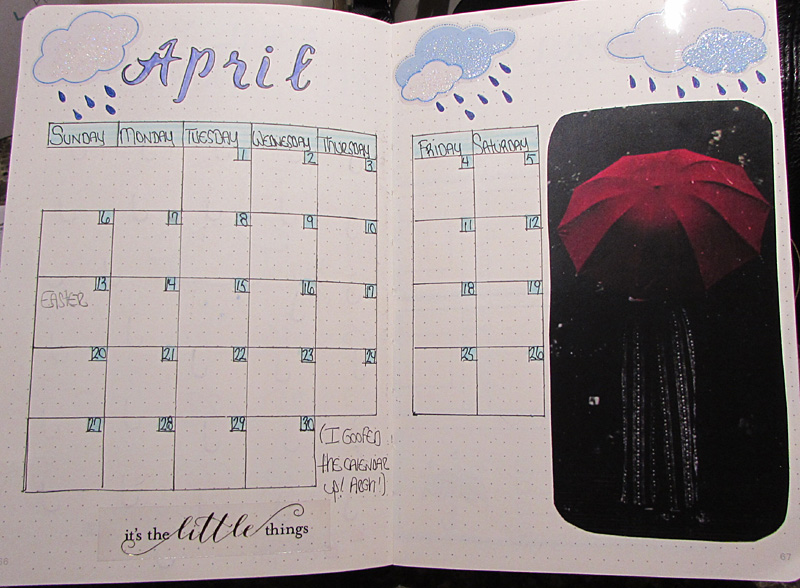 April
SUNDAY MONDAY TUESDAY WEDNESDAY THURSDAY FRIDAY SATURDAY
1 2 3 4 5
6 7 8 9 10 11 12
13 14 15 16 17 18 19
EASTER
20 21 22 23 24 25 26
27 28 29 30
(I GOOFED
the CALENDAR
up! ARGH!)
it's the little things
67